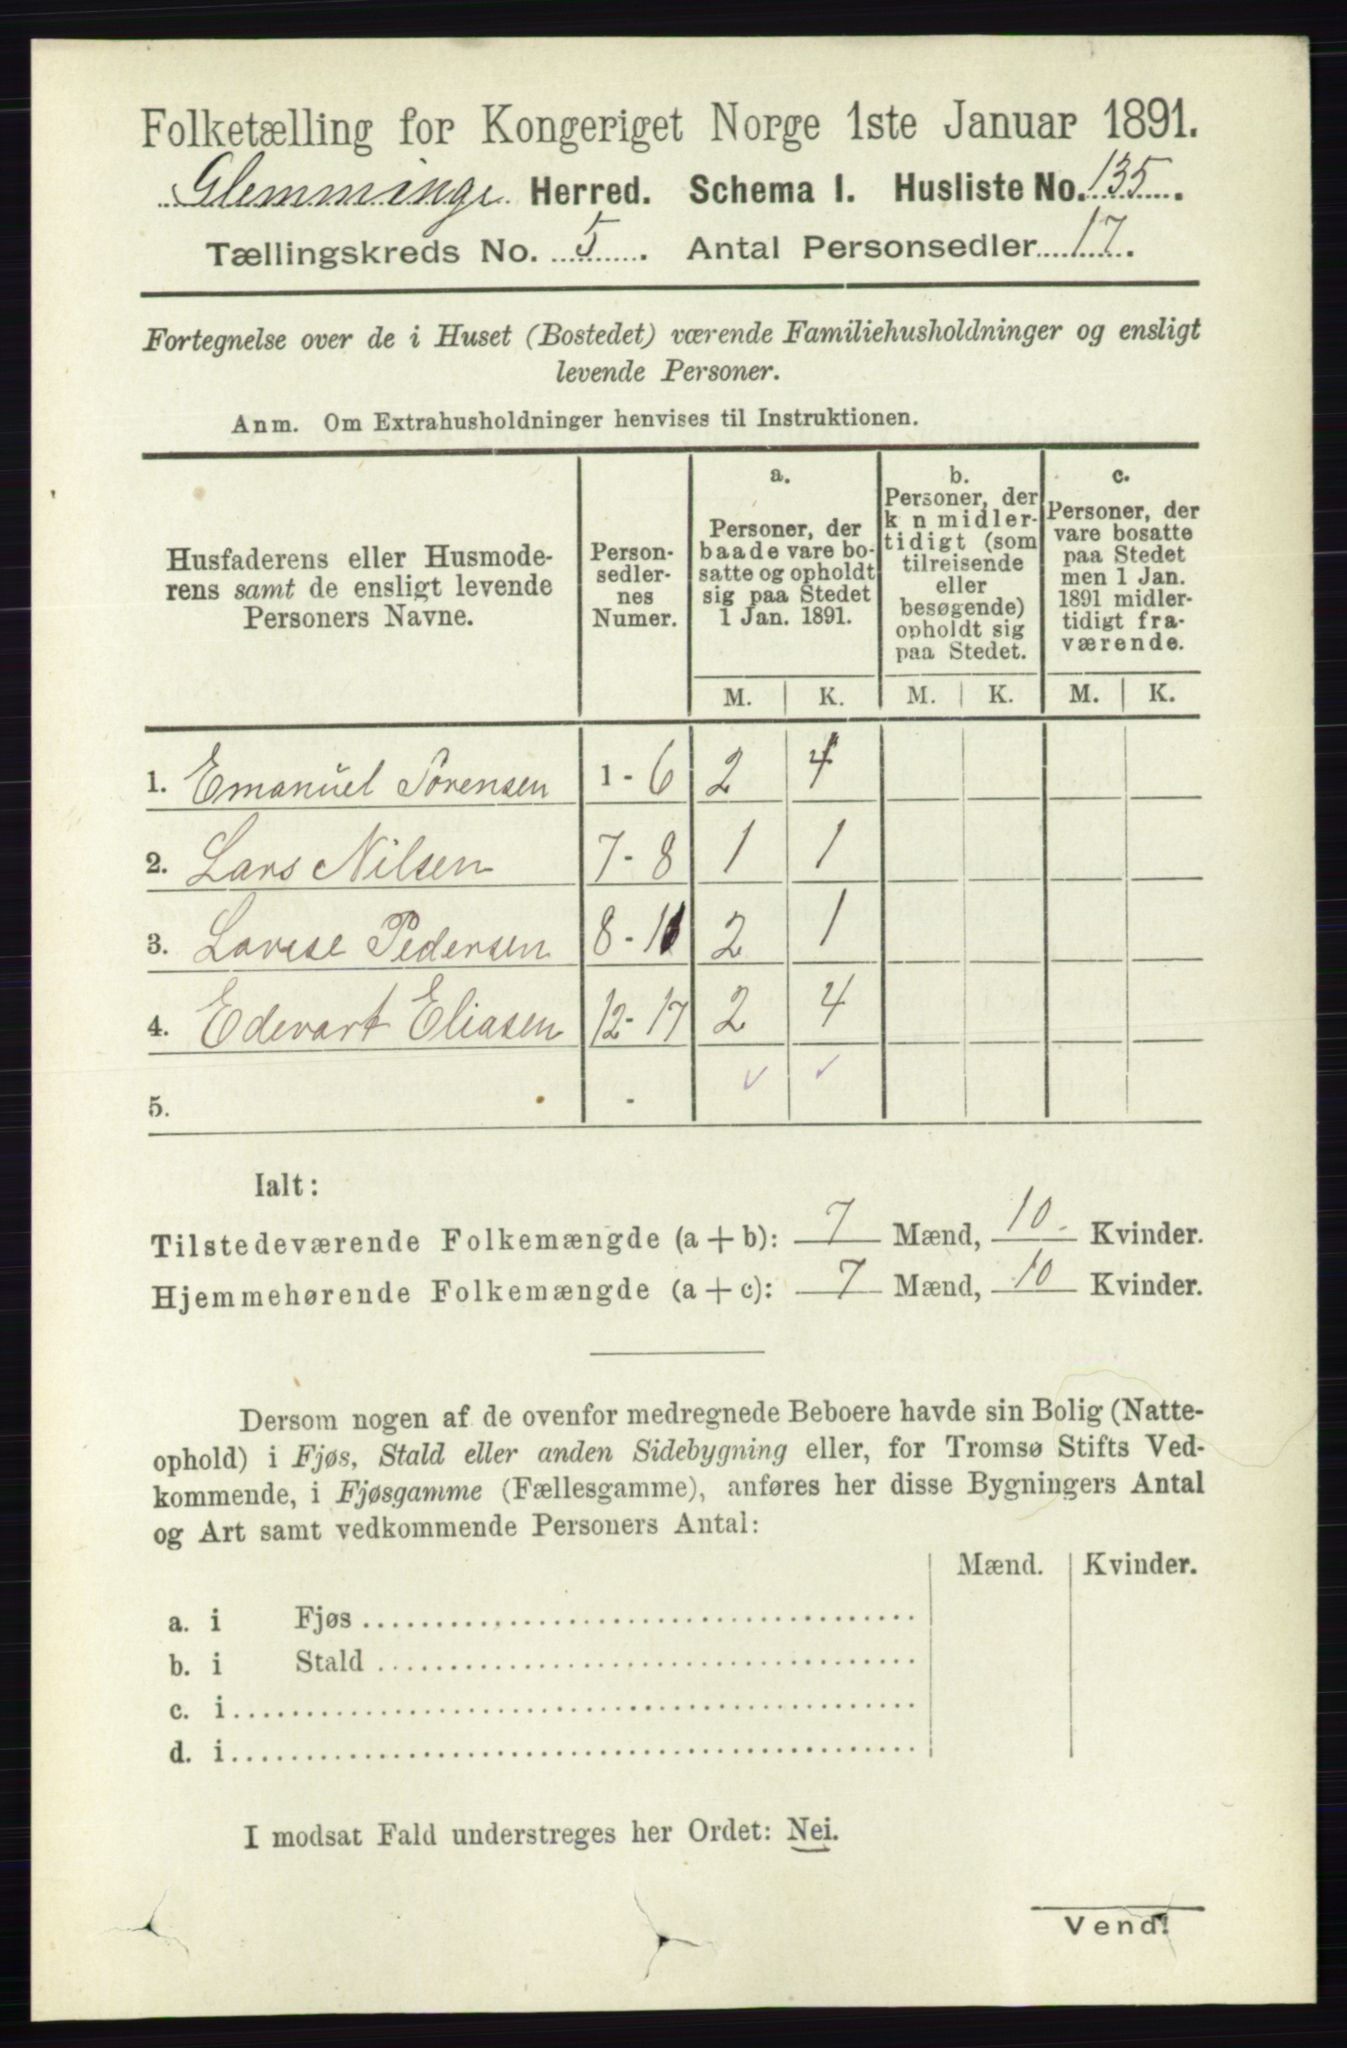 Folketælling for Kongeriget Norge 1ste Januar 1891.
Glemminge Herred. Schema I. Husliste No. 135.
Tællingskreds No. 5. Antal Personsedler 17.
Fortegnelse over de i Huset (Bostedet) værende Familiehusholdninger og ensligt
levende Personer.
Anm. Om Extrahusholdninger henvises til Instruktionen.
Husfaderens eller Husmode-
rens samt de ensligt levende
Personers Navne.
Person-
sedler-
nes
Numer.
a.
Personer, der
baade vare bo-
satte og opholdt
sig paa Stedet
1 Jan. 1891.
b.
Personer, der
k n midler-
tidigt (som
tilreisende
eller
besøgende)
opholdt sig
paa Stedet.
c.
Personer, der
vare bosatte
paa Stedet
men 1 Jan.
1891 midler-
tidigt fra-
værende.
M. K. M. K. M. K.
1. Emanuel Sørensen 1 - 6 2 4
2. Lars Nilsen 7 - 8 1 1
3. Lovise Pedersen 8 - 11 2 1
4. Edevart Eliasen 12 - 17 2 4
5. -
Ialt:
Tilstedeværende Folkemængde (a + b): 7 Mænd, 10 Kvinder.
Hjemmehørende Folkemængde (a + c): 7 Mænd, 10 Kvinder.
Dersom nogen af de ovenfor medregnede Beboere havde sin Bolig (Natte-
ophold) i Fjøs, Stald eller anden Sidebygning eller, for Tromsø Stifts Ved-
kommende, i Fjøsgamme (Fællesgamme), anføres her disse Bygningers Antal
og Art samt vedkommende Personers Antal:
Mænd. Kvinder.
a. i Fjøs
b. i Stald
c. i
d. i
I modsat Fald understreges her Ordet: Nei.
Vend!